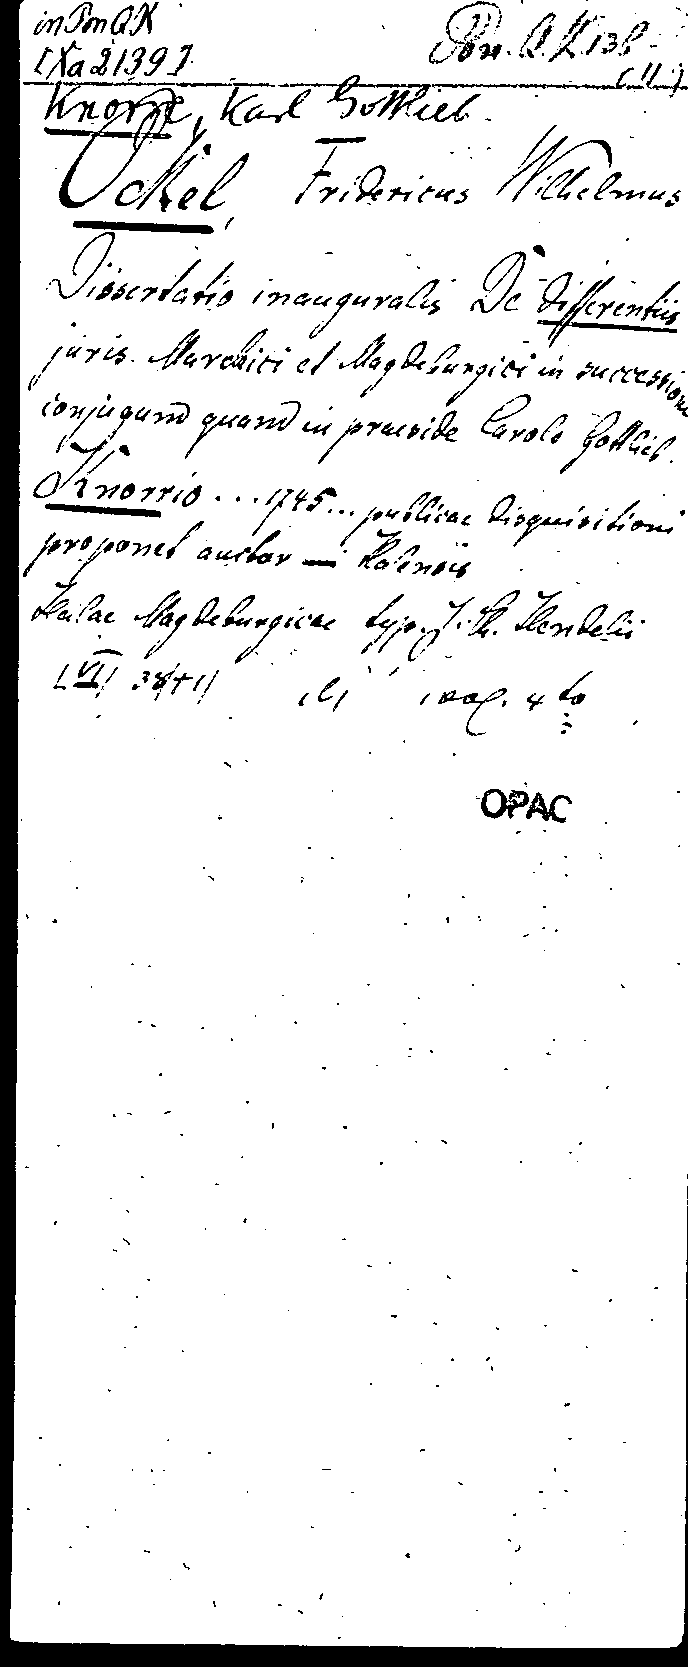 in Pon Q K
[Xa 2139]
Pon. Q. K 138
(11)
Knorre, Karl Gottlieb.
Öckel, Fridericus Wilhelmus
Dissertatio inauguralis De differentiis
juris Marchici et Magdeburgici in successione
conjugum quam in praeside Carolo Gottlieb.
Knorrio ... 1745... publicae disquisitioni
proponet auctor — Halensis
Halae Magdeburgicae typ. J. Ch. Hendelii
[VI] 38 4to
OPAC